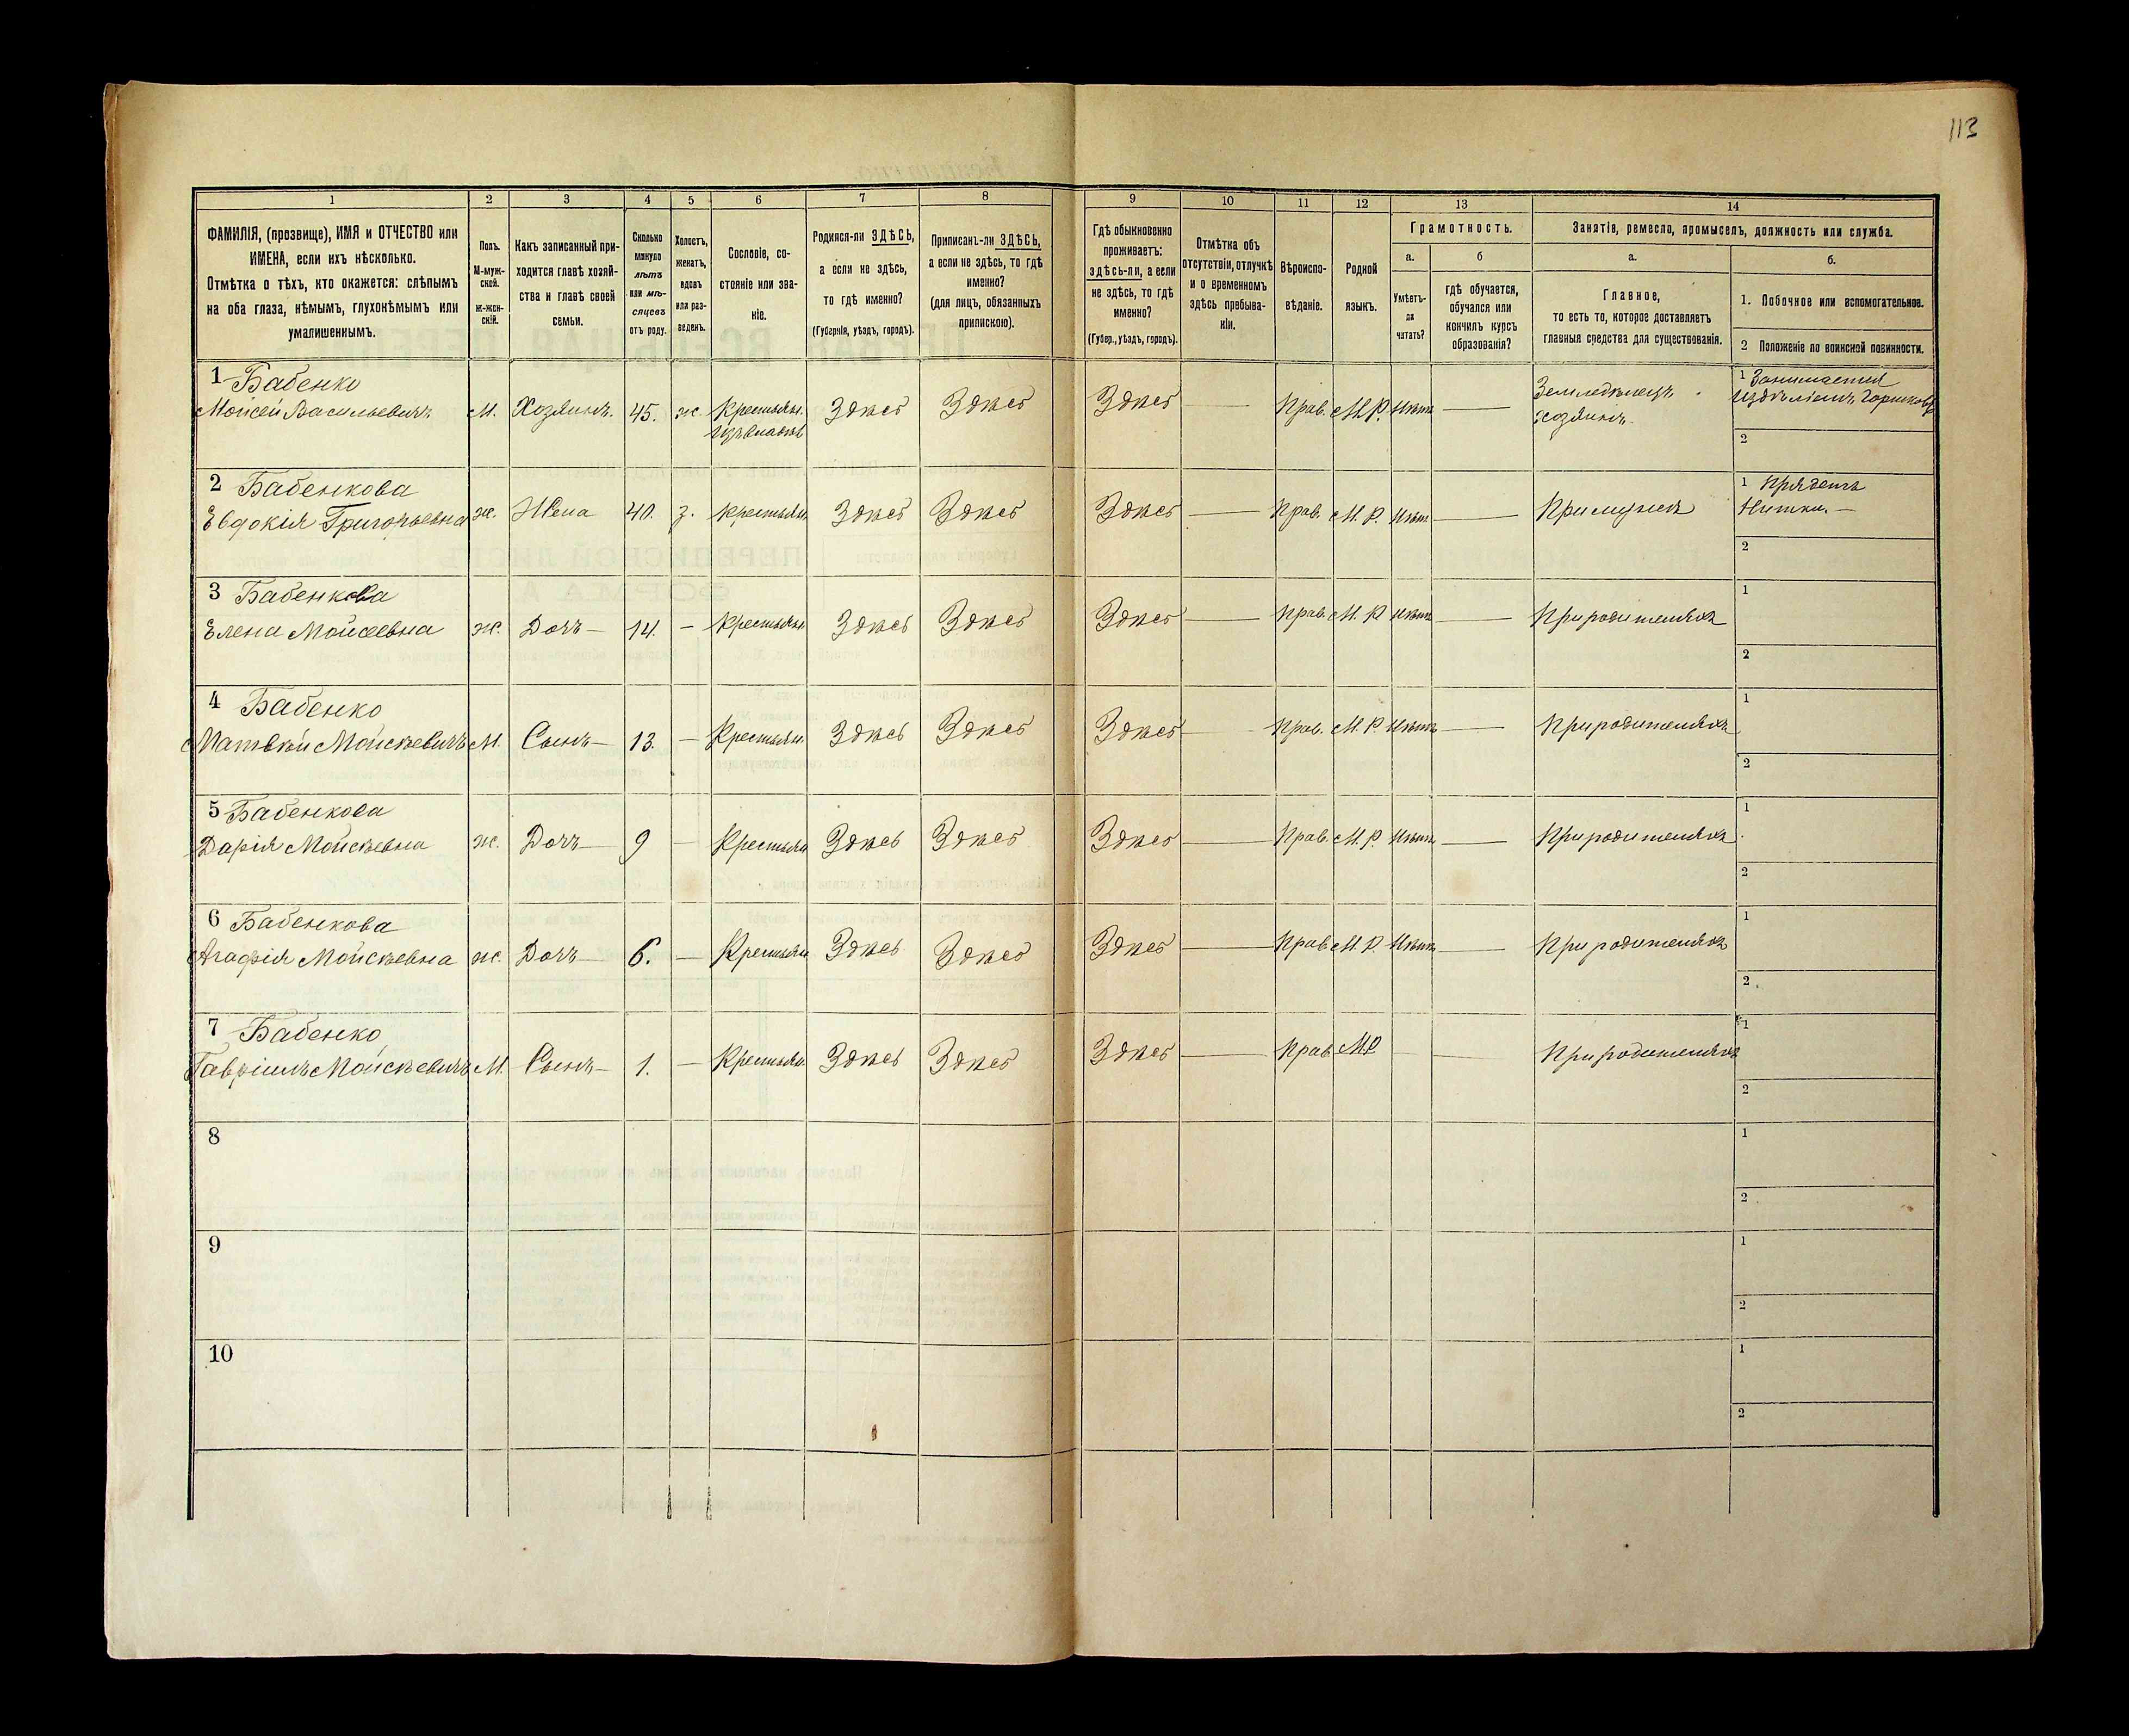 113
1 2 3 4 5 6 7 8 9 10 11 12 13 14
ФАМИЛІЯ, (прозвище), ИМЯ и ОТЧЕСТВО или
ИМЕНА, если ихъ нѣсколько.
Отмѣтка о тѣхъ, кто окажется: слѣпымъ
на оба глаза, нѣмымъ, глухонѣмымъ или
умалишеннымъ.
Полъ.
М-муж-
ской.
ж-жен-
скій.
Какъ записанный при-
ходится главѣ хозяй-
ства и главѣ своей
семьи.
Сколько
минуло
лѣтъ
или мѣ-
сяцевъ
отъ роду.
Холостъ,
женатъ,
вдовъ
или раз-
веденъ.
Сословіе, со-
стояніе или зва-
ніе.
Родился-ли ЗДѢСЬ,
а если не здѣсь,
то гдѣ именно?
(Губернія, уѣздъ, городъ).
Приписанъ-ли ЗДѢСЬ,
а если не здѣсь, то гдѣ
именно?
(для лицъ, обязанныхъ
припискою).
Гдѣ обыкновенно
проживаетъ:
здѣсь-ли, а если
не здѣсь, то гдѣ
именно?
(Губер., уѣздъ, городъ).
Отмѣтка объ
отсутствіи, отлучкѣ
и о временномъ
здѣсь пребыва-
ніи.
Вѣроиспо-
вѣданіе.
Родной
языкъ.
Грамотность.
а.
Умѣетъ-
ли
читать?
б
гдѣ обучается,
обучался или
кончилъ курсъ
образованія?
Занятія, ремесло, промыселъ, должность или служба.
а.
Главное,
то есть то, которое доставляетъ
главныя средства для существованія.
б.
1. Побочное или вспомогательное.
2 Положеніе по воинской повинности.
1 Бабенко 1 Занимается
Мойсей Васильевичъ М. Хозяинъ. 45. ж. Крестьян. Здѣсь Здѣсь Здѣсь — Прав. М.Р. Нѣтъ — Земледѣлецъ Издѣліемъ Горшковъ
хозяинъ
2
2 Бабенкова 1 Прядетъ
Евдокія Григорьевна ж. Жена 40. з. Крестьян. Здѣсь Здѣсь Здѣсь — Прав. М. Р. Нѣтъ — При мужѣ Нитки. —
2
3 Бабенкова 1
Елена Мойсеевна ж. Дочь — 14. — Крестьян Здѣсь Здѣсь Здѣсь — Прав. М. Р. Нѣтъ — При родителяхъ
2
4 Бабенко 1
Матвѣй Мойсѣевичъ М. Сынъ — 13. — Крестьян. Здѣсь Здѣсь Здѣсь — Прав. М. Р. Нѣтъ — При родителяхъ
2
5 Бабенкова 1
Дарія Мойсѣевна ж. Дочь — 9 — Крестьян Здѣсь Здѣсь Здѣсь — Прав. М. Р. Нѣтъ — При родителяхъ
2
6 Бабенкова 1
Агафія Мойсѣевна ж. Дочь — 6. — Крестьян Здѣсь Здѣсь Здѣсь — Прав. М. Р. Нѣтъ — При родителяхъ
2
7 Бабенко 1
Гавріилъ Мойсѣевичъ М. Сынъ — 1. — Крестьян. Здѣсь Здѣсь Здѣсь — Прав. МР — При родителяхъ
2
8 1
2
9 1
2
10 1
2